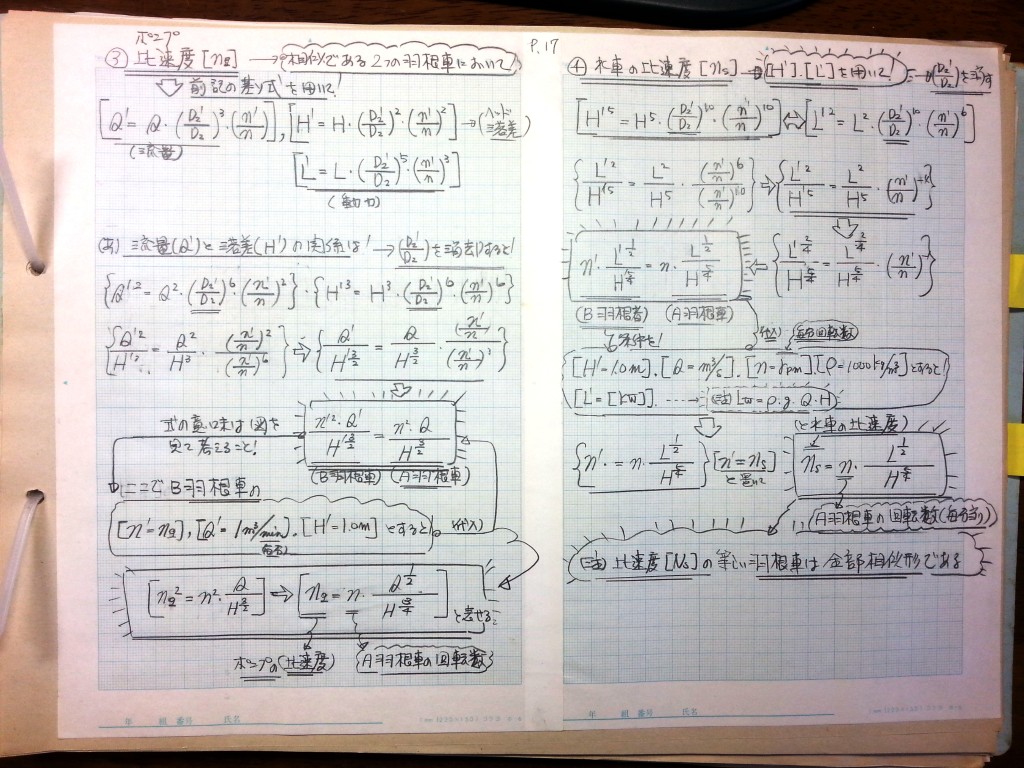 P.17
ポンプ
③ 比速度[nq] → (相似である2つの羽根車において)
⇩ 前記の基本式を用いて!
[Q' = Q・(D₂'/D₂)³・(n'/n)], [H' = H・(D₂'/D₂)²・(n'/n)²] → (ヘッド 落差)
(流量)
[L' = L・(D₂'/D₂)⁵・(n'/n)³]
(動力)
(あ) 流量(Q')と落差(H')の関係は! → (D₂'/D₂)を消去すると!
{Q'² = Q²・(D₂'/D₂)⁶・(n'/n)²}・{H'³ = H³・(D₂'/D₂)⁶・(n'/n)⁶}
{Q'²/H'³ = Q²/H³・(n'/n)²/(n'/n)⁶} ⇒ {Q'/H'^(3/2) = Q/H^(3/2)・(n'/n)/(n'/n)³}
⇩
式の意味は図を
見て考えること!
n'²・Q'/H'^(3/2) = n²・Q/H^(3/2)
(B羽根車) (A羽根車)
ここでB羽根車の
[n' = nq], [Q' = 1m³/min], [H' = 1.0m]とすると! (代入)
(毎分)
[nq² = n²・Q/H^(3/2)] ⇒ [nq = n・Q^(1/2)/H^(3/4)] と表せる
ポンプの(比速度) (A羽根車の回転数)
④ 水車の比速度[ns] → [H'].[L']を用いて! → (D₂'/D₂)を消す
[H'⁵ = H⁵・(D₂'/D₂)¹⁰・(n'/n)¹⁰] ⇔ [L'² = L²・(D₂'/D₂)¹⁰・(n'/n)⁶]
{L'²/H'⁵ = L²/H⁵・(n'/n)⁶/(n'/n)¹⁰} ⇒ {L'²/H'⁵ = L²/H⁵・(n'/n)⁻⁴}
⇩
n'・L'^(1/2)/H'^(5/4) = n・L^(1/2)/H^(5/4) ⇐ {L'^(2/4)/H'^(5/4) = L^(2/4)/H^(5/4)・(n'/n)}
(B羽根車) (A羽根車)
条件を! (代入) (毎分回転数)
[H' = 1.0m], [Q = m³/s], [n = rpm], [ρ = 1000kg/m³]とすると!
[L' = [kW]] ----→ (注) Lw = ρ.g.Q.H
⇩ (と水車の比速度)
{n' = n・L^(1/2)/H^(5/4)} [n' = ns] ns = n・L^(1/2)/H^(5/4)
と置いて
A羽根車の回転数(毎分当り)
(注) 比速度[Ns]の等しい羽根車は全部相似形である
年 組 番号 氏名
年 組 番号 氏名